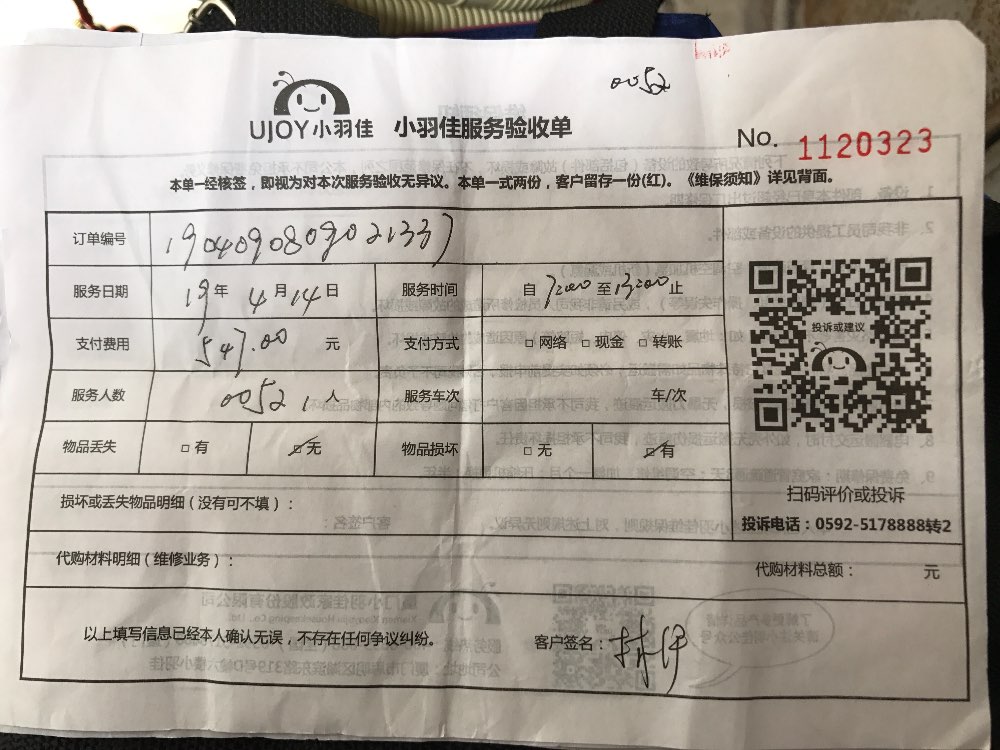 0052
UJOY小羽佳 小羽佳服务验收单
No. 1120323
本单一经核签，即视为对本次服务验收无异议。本单一式两份，客户留存一份(红)。《维保须知》详见背面。
订单编号 1904090809021337
服务日期 19年4月14日 服务时间 自 至 止
支付费用 547.00 元 支付方式 □网络 □现金 □转账
服务人数 0052 1 人 服务车次 车/次
物品丢失 □有 ☑无 物品损坏 □无 ☑有
投诉或建议
扫码评价或投诉
投诉电话：0592-5178888转2
损坏或丢失物品明细（没有可不填）：
代购材料明细（维修业务）： 代购材料总额： 元
以上填写信息已经本人确认无误，不存在任何争议纠纷。 客户签名：